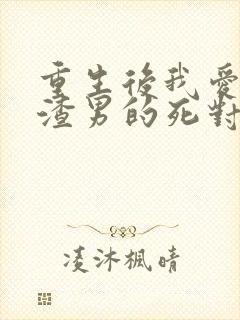 重生後我愛
渣男的死對
凌沐楓晴